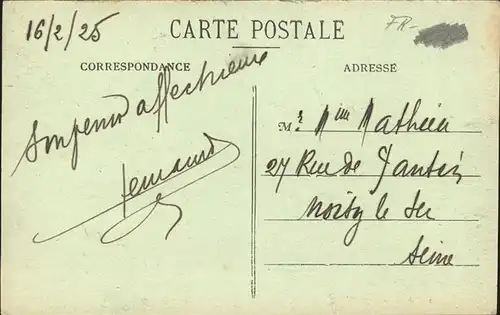 16/2/25
CARTE POSTALE
FR-
CORRESPONDANCE
ADRESSE
affectueux
Fernand
M. Mathieu
27 Rue de Pantin
Noisy le Sec
Seine